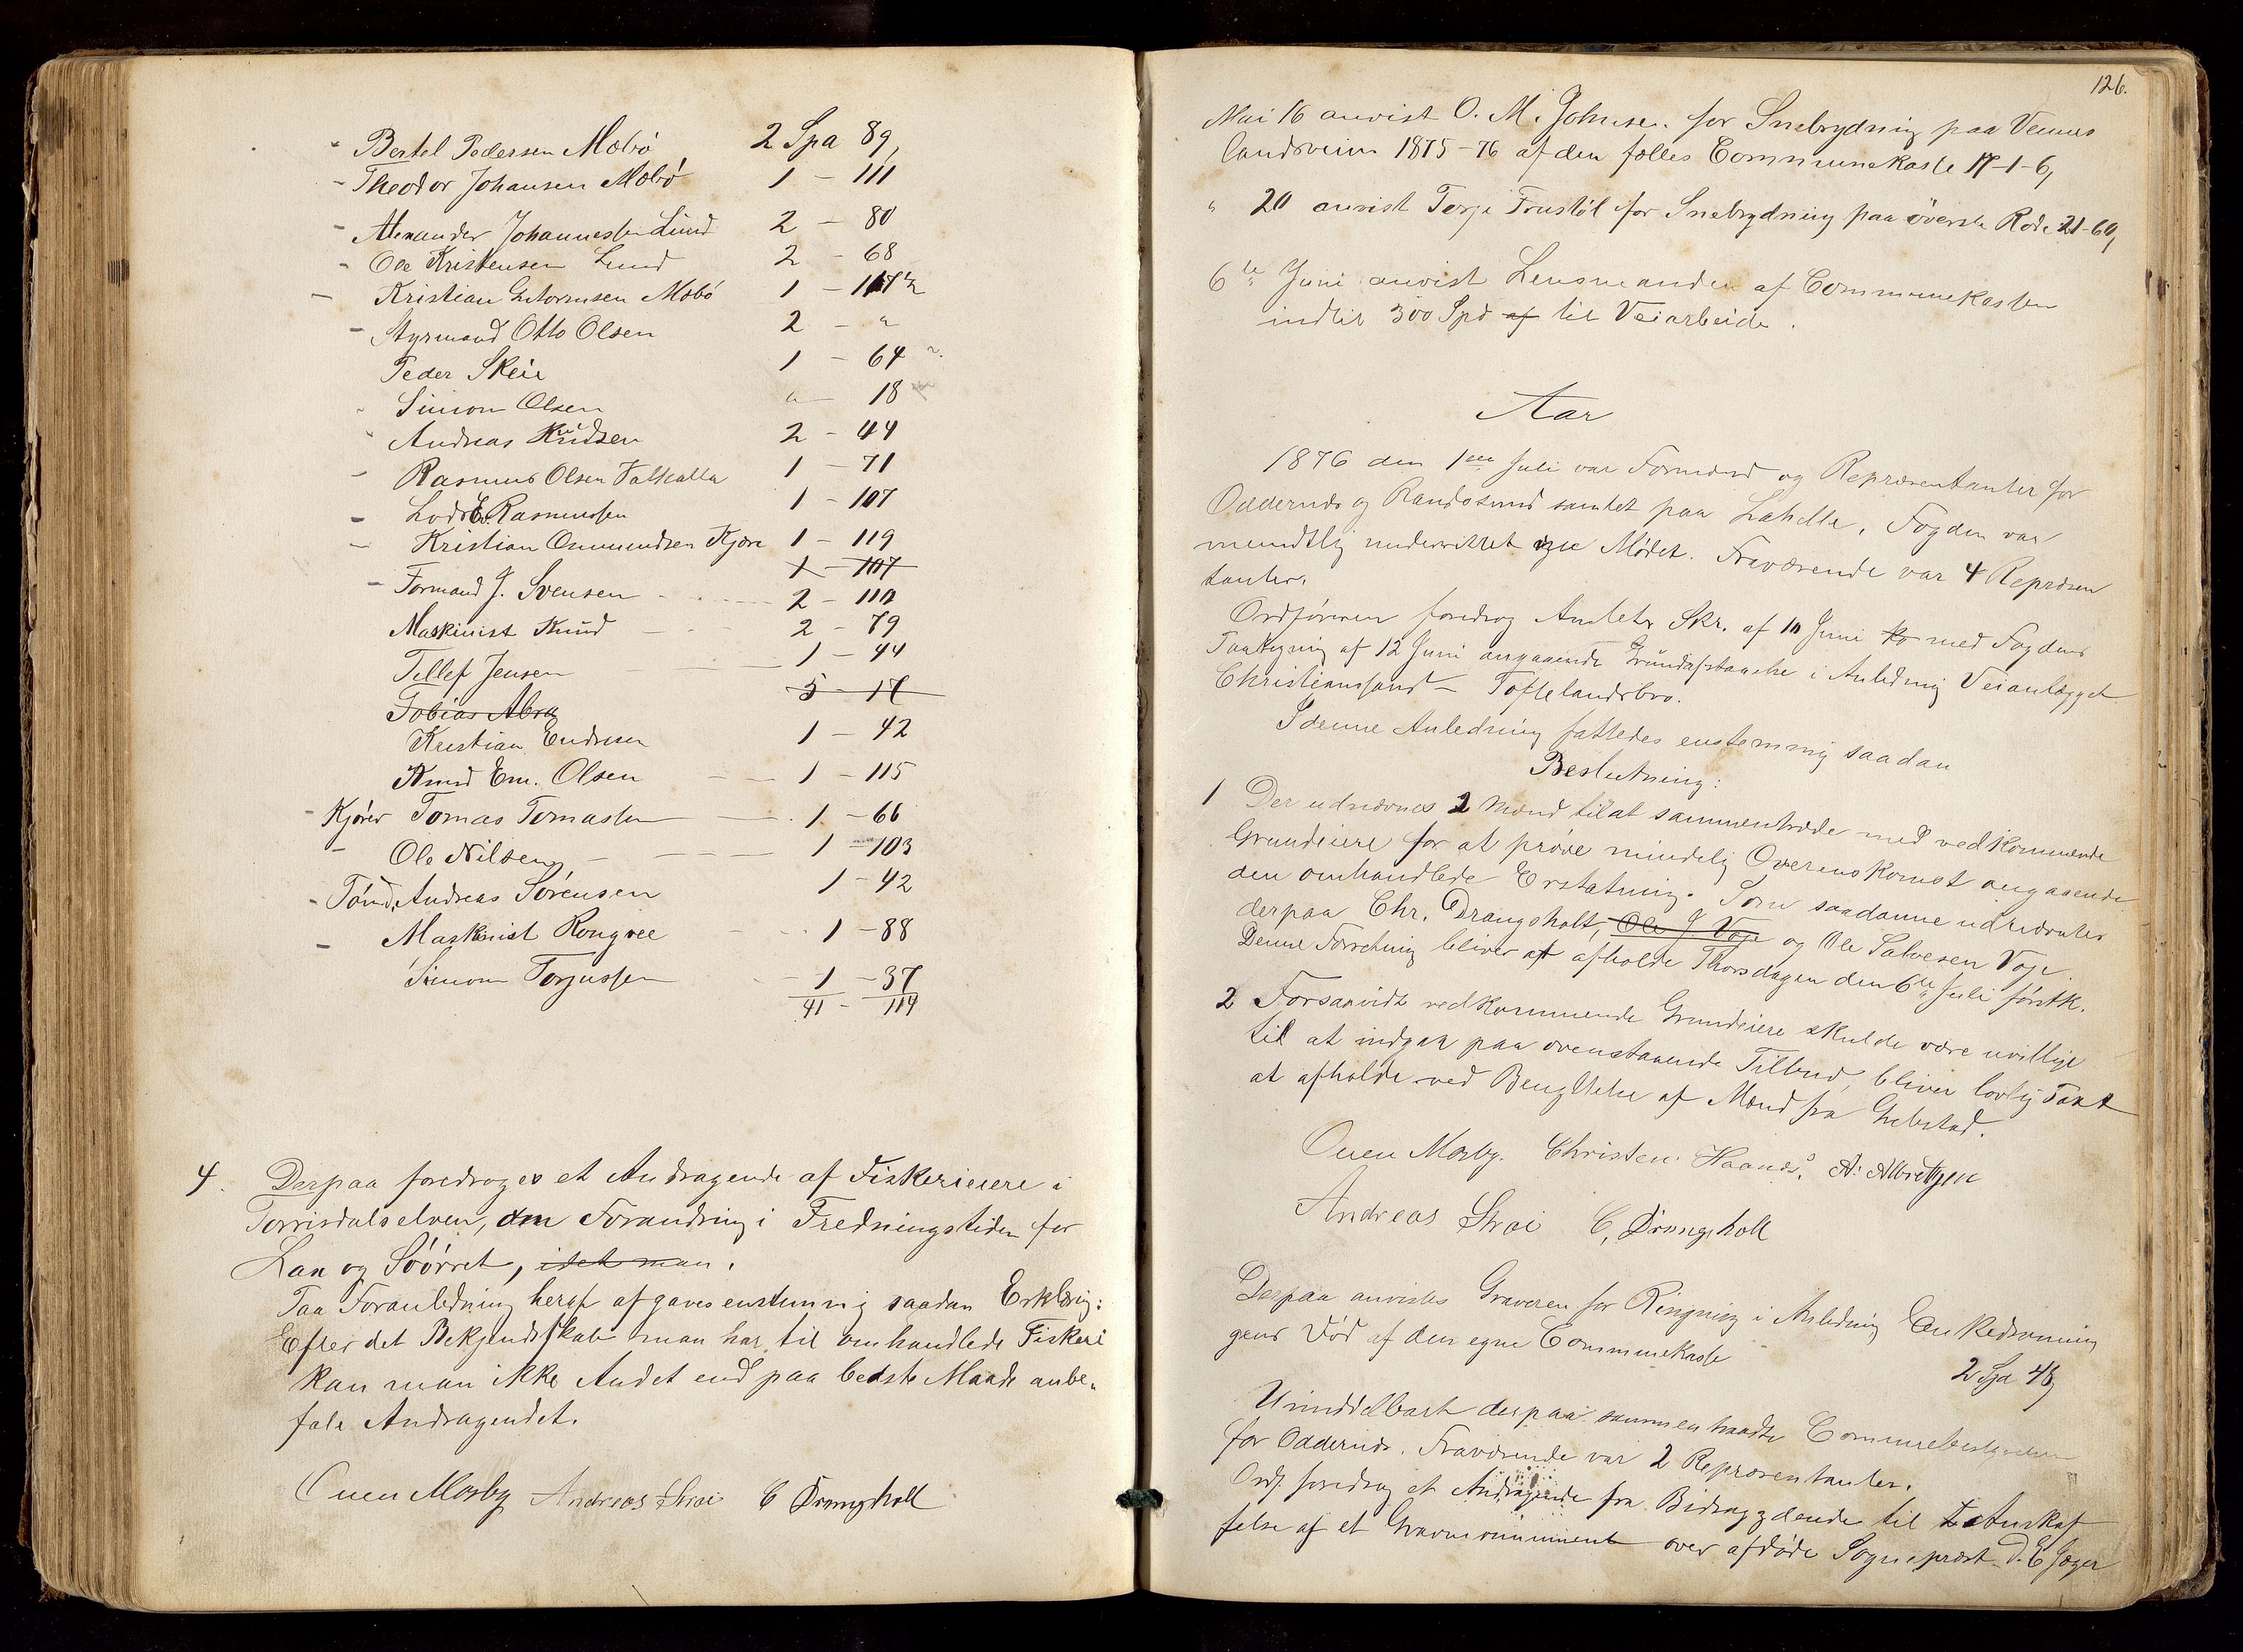 - Bertel Pedersen Mæbø 2 Spd 89,
- Theodor Johansen Mæbø 1 - 111
- Alexander Johannessen Lund 2 - 80
- Ole Kristensen Lund 2 - 68
- Kristian Mæbø 1 - 117½
- Styrmand Otto Olsen 2 - "
Peder Skeie 1 - 64
- Simon Olsen " - 18
- Andreas Knudsen 2 - 44
- Rasmus Olsen 1 - 71
- Lods E. Rasmussen 1 - 107
- Kristian Osmundsen Kjøre 1 - 119
1 - 107
- Formand J. Svensen 2 - 110
Maskinist Knud 2 - 79
Tellef Jensen 1 - 44
Tobias Abra 5 - 17
Kristian Endresen 1 - 42
Knud Em. Olsen 1 - 115
- Kjører Tomas Tomassen 1 - 66
- Ole Nilsen 1 - 103
- Tønd. Andreas Sørensen 1 - 42
- Maskinist Rongvee 1 - 88
Simon Torjussen 1 - 37
41 - 114
4. Derpaa foredroges et Andragende af Fiskerieiere i
Torrisdalselven, om Forandring i Fredningstiden for
Lax og Søørret, idet man.
Paa Foranledning heraf afgaves enstemmig saadan Erklæring:
Efter det Bekjendtskab man har til omhandlede Fiskeri
kan man ikke Andet end paa bedste Maade anbe-
fale Andragendet.
Ouen Mosby Andreas Strai C Drangsholt
126.
Mai 16 anvist O. M. Johnsen for Snebrydning paa Vennes
landsveien 1875-76 af den fælles Communekasse 17-1-6,
" 20 anvist Terje Frustøl for Snebrydning paa øverste Rode 21-60,
6te Juni anvist Lensmanden af Communekassen
indtil 300 Spd af til Veiarbeide.
Aar
1876 den 1ste Juli var Formænd og Repræsentanter for
Oddernes og Randøsund samlet paa Lahelle. Fogden var
mundtlig underrettet om Mødet. Fraværende var 4 Repræsen
tanter.
Ordføreren foredrog Amtets Skr. af 10 Juni med Fogdens
Paategning af 12 Juni angaaende Grundafstaaelse i Anledning Veianlægget
Christianssand - Toftelandsbro.
I denne Anledning fattedes enstemmig saadan
Beslutning:
1 Der udnævnes 2 Mænd til at sammentræde med vedkommende
Grundeiere for at prøve mindelig Overenskomst angaaende
den omhandlede Erstatning. Som saadanne udnævntes
derpaa Chr. Drangsholt, Ole J Voje og Ole Salvesen Voje.
Denne Forretning bliver at afholde Thorsdagen den 6te Juli førstk.
2 Forsaavidt vedkommende Grundeiere skulde være uvillige
til at indgaa paa ovenstaaende Tilbud, bliver lovlig Taxt
at afholde ved Benyttelse af Mænd fra Grebstad.
Ouen Mosby. Christen Haands. A. Albretzen
Andreas Strai C, Drangsholt
Derpaa anvistes Graveren for Ringning i Anledning Enkedronnin
gens Død af den egne Communekasse 2 Spd 48,
Umiddelbart derpaa sammentraadte Communebestyrelsen
for Oddernes. Fraværende var 2 Repræsentanter.
Ordf foredrog et Andragende fra Bidragydende til Anskaf
felse af et Gravmonument over afdøde Sogneprest J. E Jæger